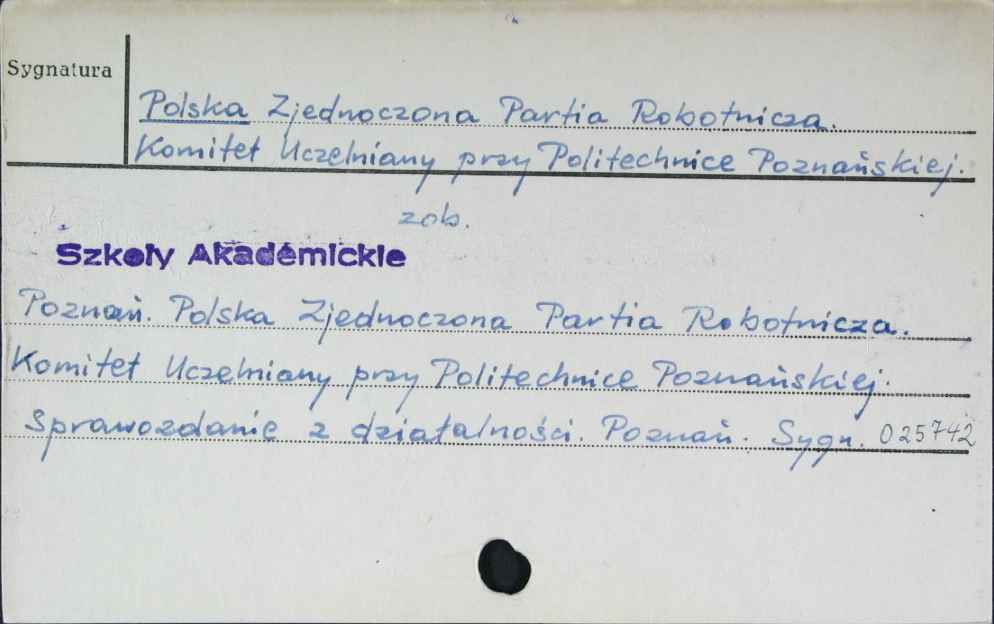 Sygnatura
Polska Zjednoczona Partia Robotnicza.
Komitet Uczelniany przy Politechnice Poznańskiej.
zob.
Szkoły Akadémickie
Poznań. Polska Zjednoczona Partia Robotnicza.
Komitet Uczelniany przy Politechnice Poznańskiej.
Sprawozdanie z działalności. Poznań. Sygn. 025742